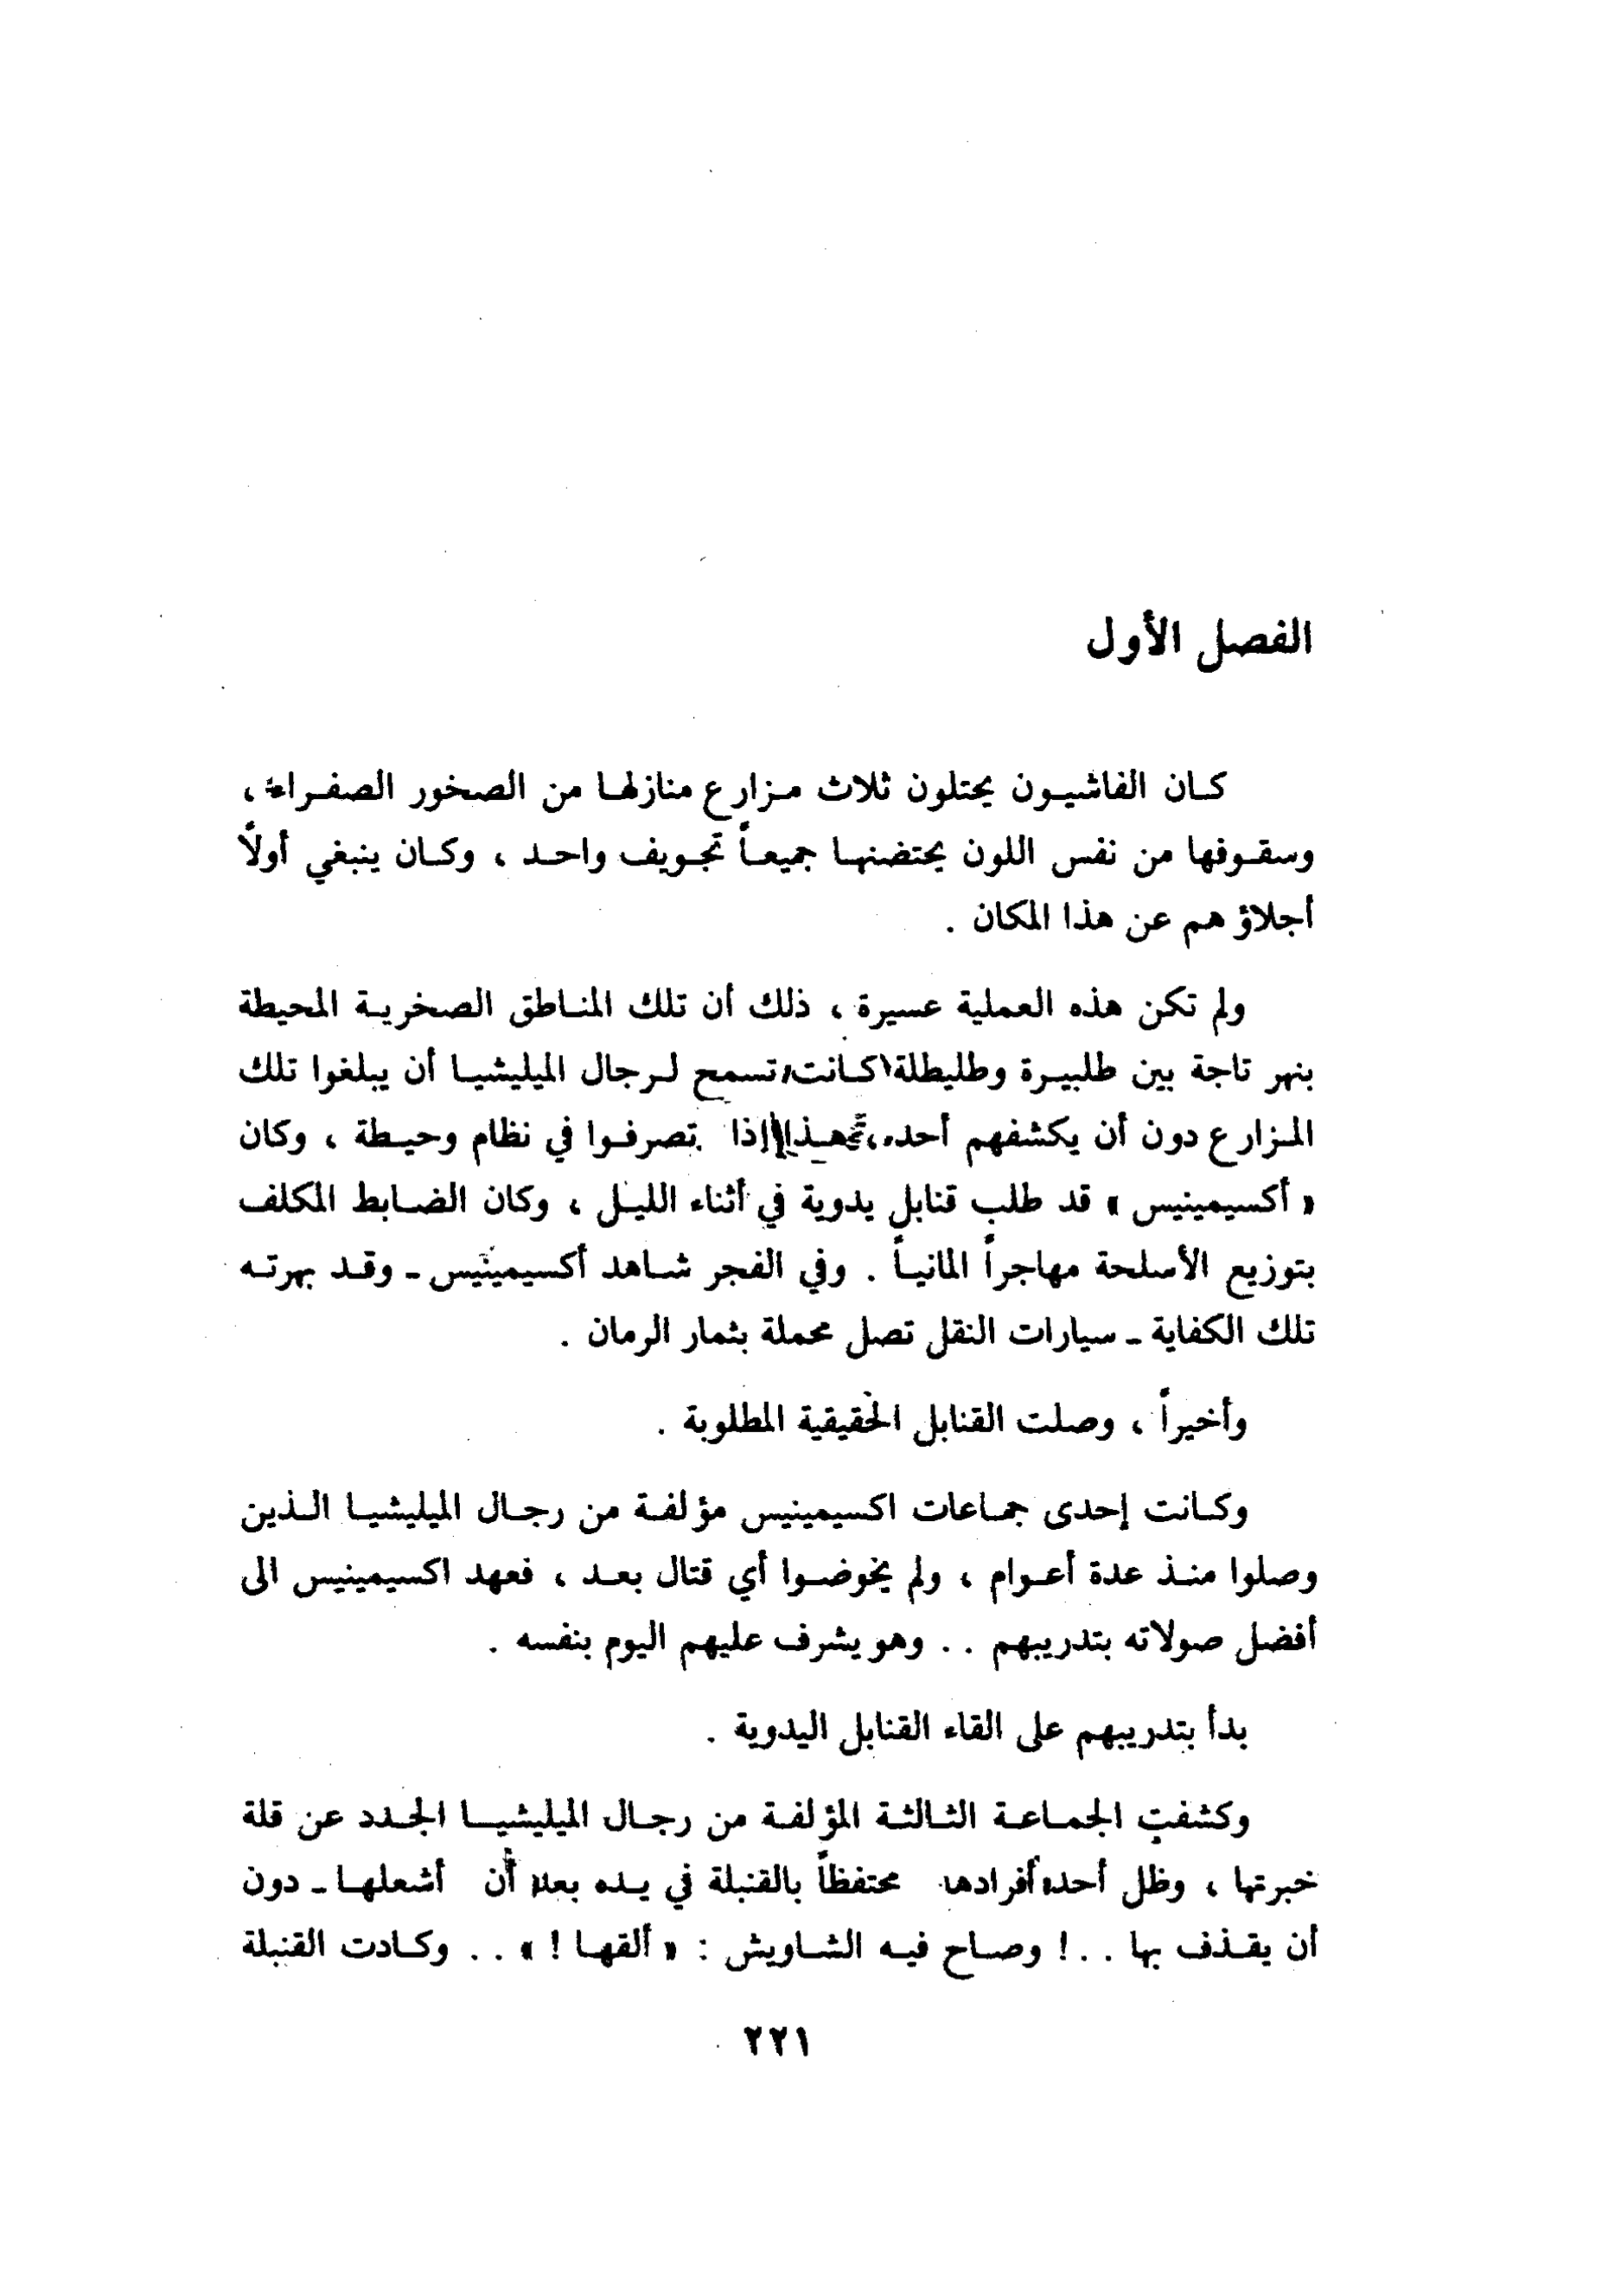 الفصل الأول
كان الفاشيون يحتلون ثلاث مزارع منازلها من الصخور الصفراء ،
وسقوفها من نفس اللون يحتضنها جميعاً تجويف واحد ، وكان ينبغي أولاً
أجلاؤهم عن هذا المكان .
ولم تكن هذه العملية عسيرة ، ذلك أن تلك المناطق الصخرية المحيطة
بنهر تاجة بين طلبيرة وطليطلة كانت تسمح لرجال الميليشيا أن يبلغوا تلك
المزارع دون أن يكشفهم أحد ، هذا إذا تصرفوا في نظام وحيطة ، وكان
« أكسيمينيس » قد طلب قنابل يدوية في أثناء الليل ، وكان الضابط المكلف
بتوزيع الأسلحة مهاجراً المانياً . وفي الفجر شاهد أكسيمينيس - وقد بهرته
تلك الكفاية - سيارات النقل تصل محملة بثمار الرمان .
وأخيراً ، وصلت القنابل الحقيقية المطلوبة .
وكانت إحدى جماعات اكسيمينيس مؤلفة من رجال الميليشيا الذين
وصلوا منذ عدة أعوام ، ولم يخوضوا أي قتال بعد ، فعهد اكسيمينيس الى
أفضل صولاته بتدريبهم . . وهو يشرف عليهم اليوم بنفسه .
بدأ بتدريبهم على القاء القنابل اليدوية .
وكشفت الجماعة الثالثة المؤلفة من رجال الميليشيا الجدد عن قلة
خبرتها ، وظل أحد أفرادها محتفظاً بالقنبلة في يده بعد أن أشعلها - دون
أن يقذف بها . . ! وصاح فيه الشاويش : « ألقها ! » . . وكادت القنبلة
٢٢١